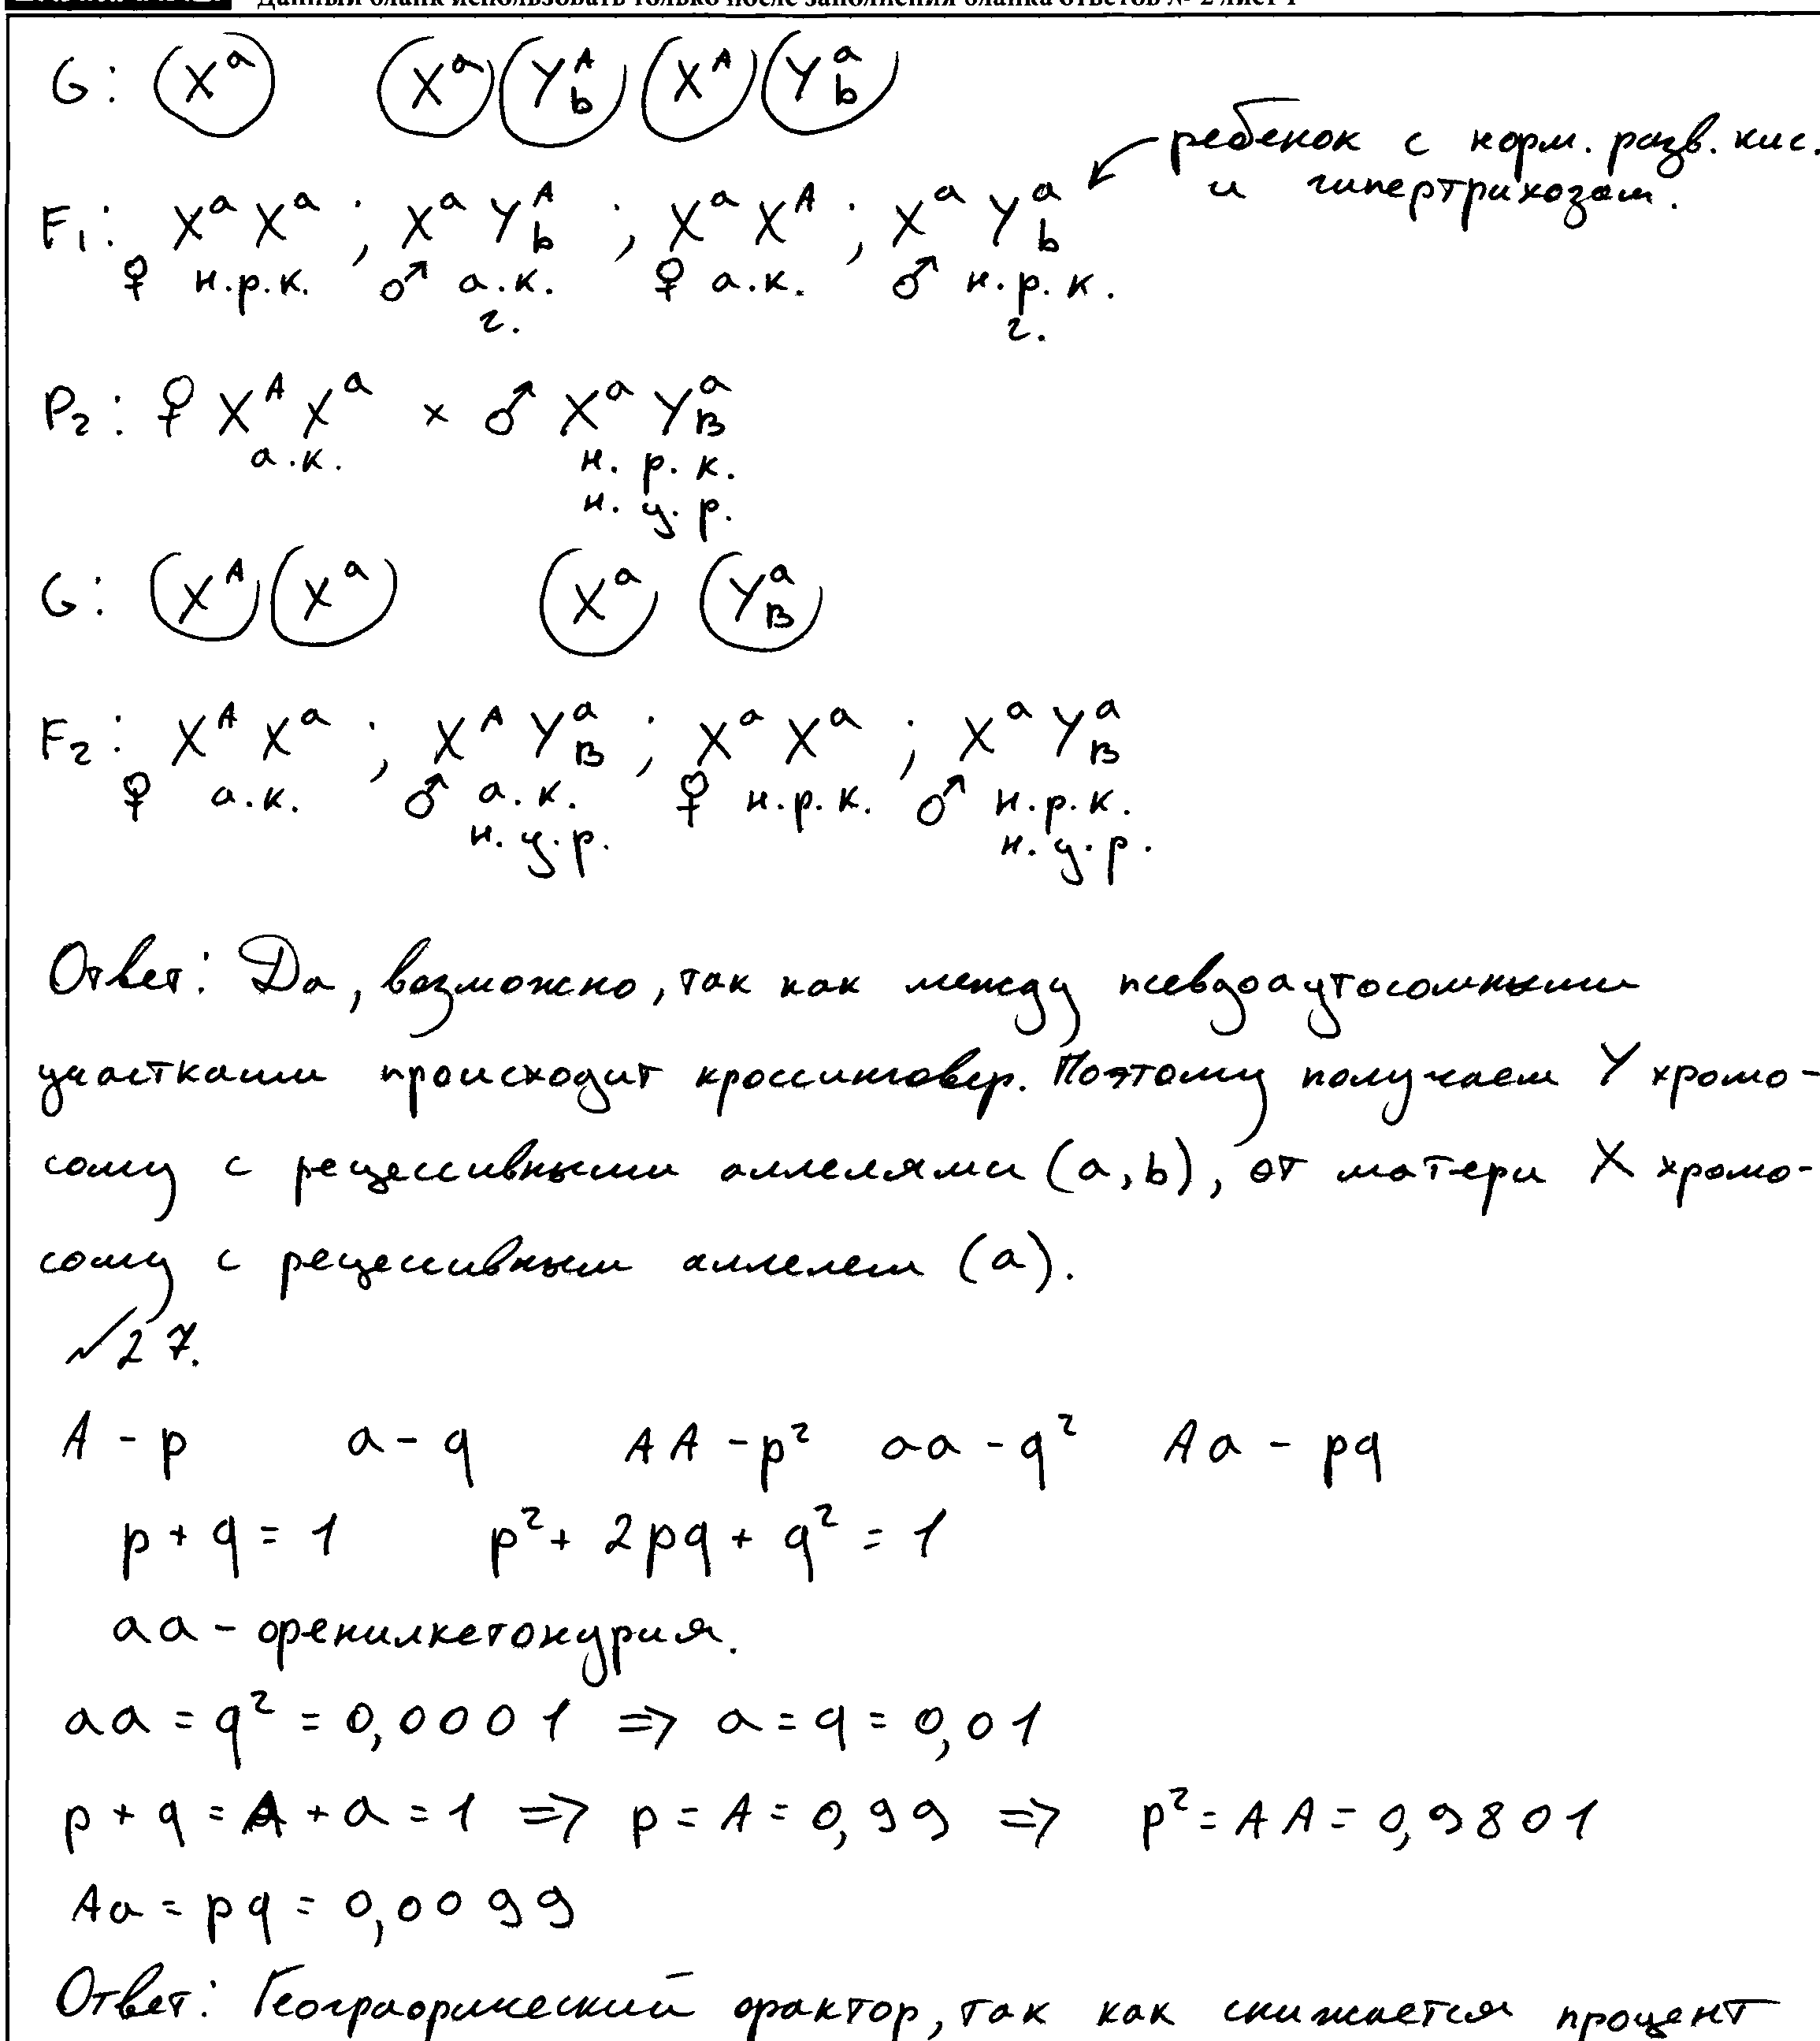 Данный бланк использовать только после заполнения бланка ответов № 2 лист 1
G: (Xᵃ) (Xᵃ) (Y_b^A) (X^A) (Y_b^a)
ребенок с норм. разв. кис.
и гипертрихозом.
F₁: XᵃXᵃ ; XᵃY_b^A ; XᵃX^A ; XᵃY_b^a
♀ н.р.к. ♂ а.к. ♀ а.к. ♂ н.р.к.
г. г.
P₂: ♀ X^A Xᵃ × ♂ Xᵃ Y_B^a
а.к. н.р.к.
н.у.р.
G: (X^A) (Xᵃ) (Xᵃ) (Y_B^a)
F₂: X^A Xᵃ ; X^A Y_B^a ; Xᵃ Xᵃ ; Xᵃ Y_B^a
♀ а.к. ♂ а.к. ♀ н.р.к. ♂ н.р.к.
н.у.р. н.у.р.
Ответ: Да, возможно, так как между псевдоаутосомными
участками происходит кроссинговер. Поэтому получаем Y хромо-
сому с рецессивными аллелями (a, b), от матери X хромо-
сому с рецессивным аллелем (a).
№27.
A - p a - q AA - p² aa - q² Aa - pq
p + q = 1 p² + 2pq + q² = 1
aa - фенилкетонурия.
aa = q² = 0,0001 => a = q = 0,01
p + q = A + a = 1 => p = A = 0,99 => p² = AA = 0,9801
Aa = pq = 0,0099
Ответ: Географический фактор, так как снижается процент